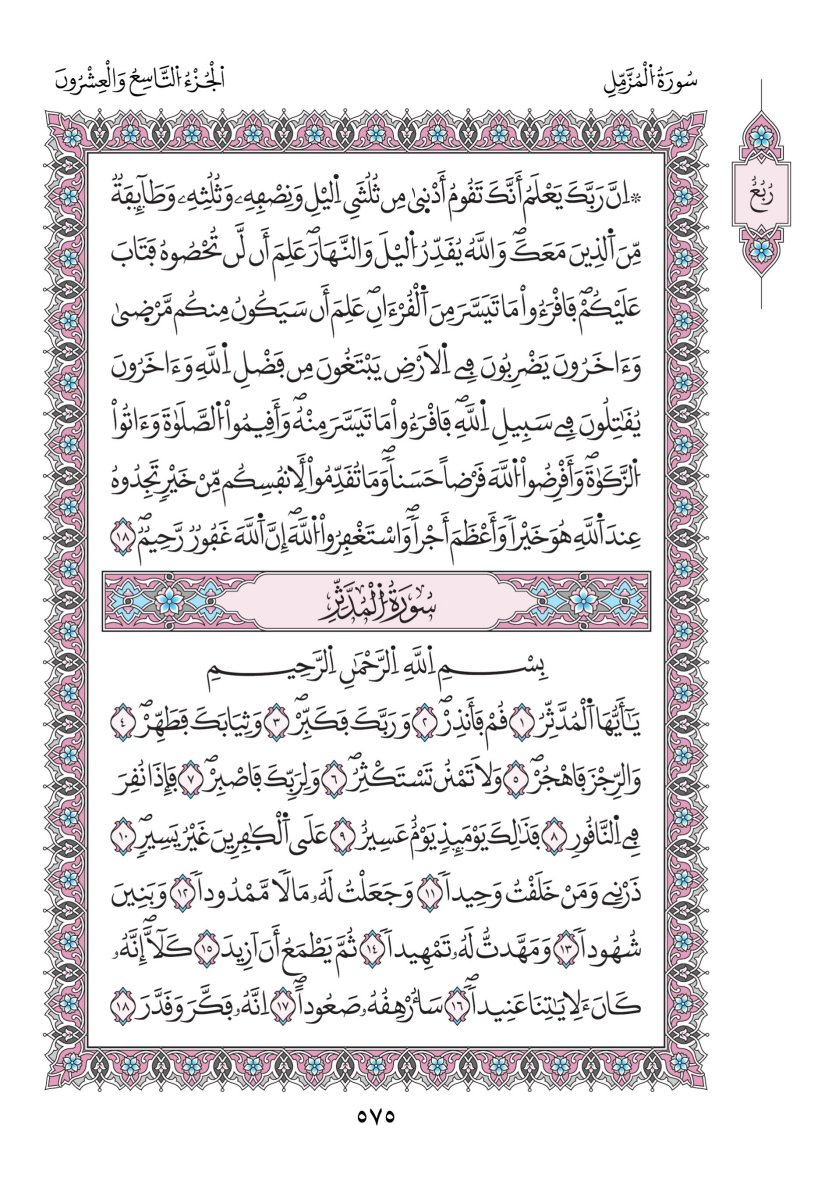 سُورَةُ الْمُزَّمِّلِ
الْجُزْءُ التَّاسِعُ وَالْعِشْرُونَ
رُبُعُ
۞ اِنَّ رَبَّكَ يَعْلَمُ أَنَّكَ تَقُومُ أَدْنىٰ مِن ثُلُثَيِ اِليْلِ وَنِصْفِهِۦ وَثُلُثِهِۦ وَطَآئِفَةٌ
مِّنَ اَلذِينَ مَعَكَۖ وَاللَّهُ يُقَدِّرُ اُليْلَ وَالنَّهَارَۖ عَلِمَ أَن لَّن تُحْصُوهُ فَتَابَ
عَلَيْكُمْۖ فَاقْرَءُواْ مَا تَيَسَّرَ مِنَ اَلْقُرْءَانِۖ عَلِمَ أَن سَيَكُونُ مِنكُم مَّرْضىٰ
وَءَاخَرُونَ يَضْرِبُونَ فِے اِلَارْضِ يَبْتَغُونَ مِن فَضْلِ اِللَّهِ وَءَاخَرُونَ
يُقَٰتِلُونَ فِے سَبِيلِ اِللَّهِۖ فَاقْرَءُواْ مَا تَيَسَّرَ مِنْهُۖ وَأَقِيمُواْ اُلصَّلَوٰةَ وَءَاتُواْ
اُلزَّكَوٰةَۖ وَأَقْرِضُواْ اُللَّهَ قَرْضاً حَسَناٗۖ وَمَا تُقَدِّمُواْ لِأَنفُسِكُم مِّنْ خَيْرٖ تَجِدُوهُ
عِندَ اَللَّهِ هُوَ خَيْراٗ وَأَعْظَمَ أَجْراٗۖ وَاسْتَغْفِرُواْ اُللَّهَۖ إِنَّ اَللَّهَ غَفُورٞ رَّحِيمٌۖ ١٨
سُورَةُ الْمُدَّثِّرِ
بِسْمِ اِللَّهِ اِلرَّحْمَٰنِ اِلرَّحِيمِ
يَٰٓأَيُّهَا اَلْمُدَّثِّرُ ١ قُمْ فَأَنذِرْۖ ٢ وَرَبَّكَ فَكَبِّرْۖ ٣ وَثِيَابَكَ فَطَهِّرْۖ ٤
وَالرِّجْزَ فَاهْجُرْۖ ٥ وَلَا تَمْنُن تَسْتَكْثِرُۖ ٦ وَلِرَبِّكَ فَاصْبِرْۖ ٧ فَإِذَا نُقِرَ
فِے اِلنَّاقُورِ ٨ فَذَٰلِكَ يَوْمَئِذٖ يَوْمٌ عَسِيرٌ ٩ عَلَى اَلْكٰفِرِينَ غَيْرُ يَسِيرٖۖ ١٠
ذَرْنِے وَمَنْ خَلَقْتُ وَحِيداٗ ١١ وَجَعَلْتُ لَهُۥ مَالاٗ مَّمْدُوداٗ ١٢ وَبَنِينَ
شُهُوداٗ ١٣ وَمَهَّدتُّ لَهُۥ تَمْهِيداٗ ١٤ ثُمَّ يَطْمَعُ أَنَ اَزِيدَ ١٥ كَلَّآۖ إِنَّهُۥ
كَانَ ءَلِايَٰتِنَا عَنِيداٗۖ ١٦ سَأُرْهِقُهُۥ صَعُوداًۖ ١٧ اِنَّهُۥ فَكَّرَ وَقَدَّرَ ١٨
٥٧٥